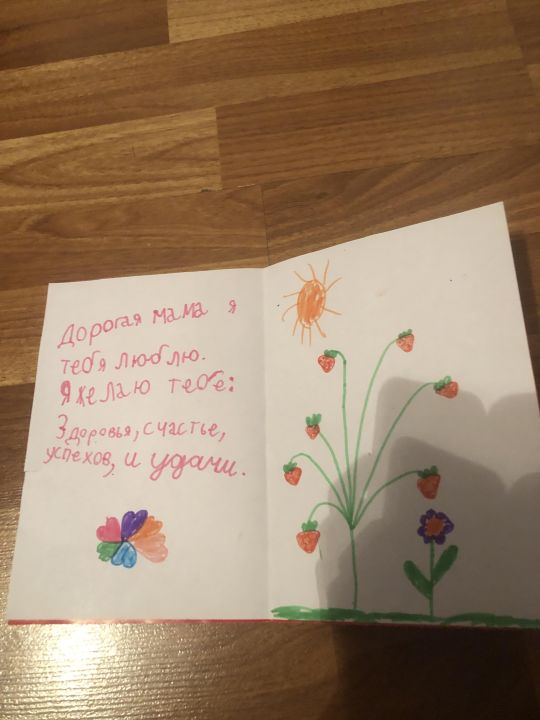 Дорогая мама я
тебя люблю.
Я желаю тебе:
Здоровья, счастье,
успехов, и удачи.